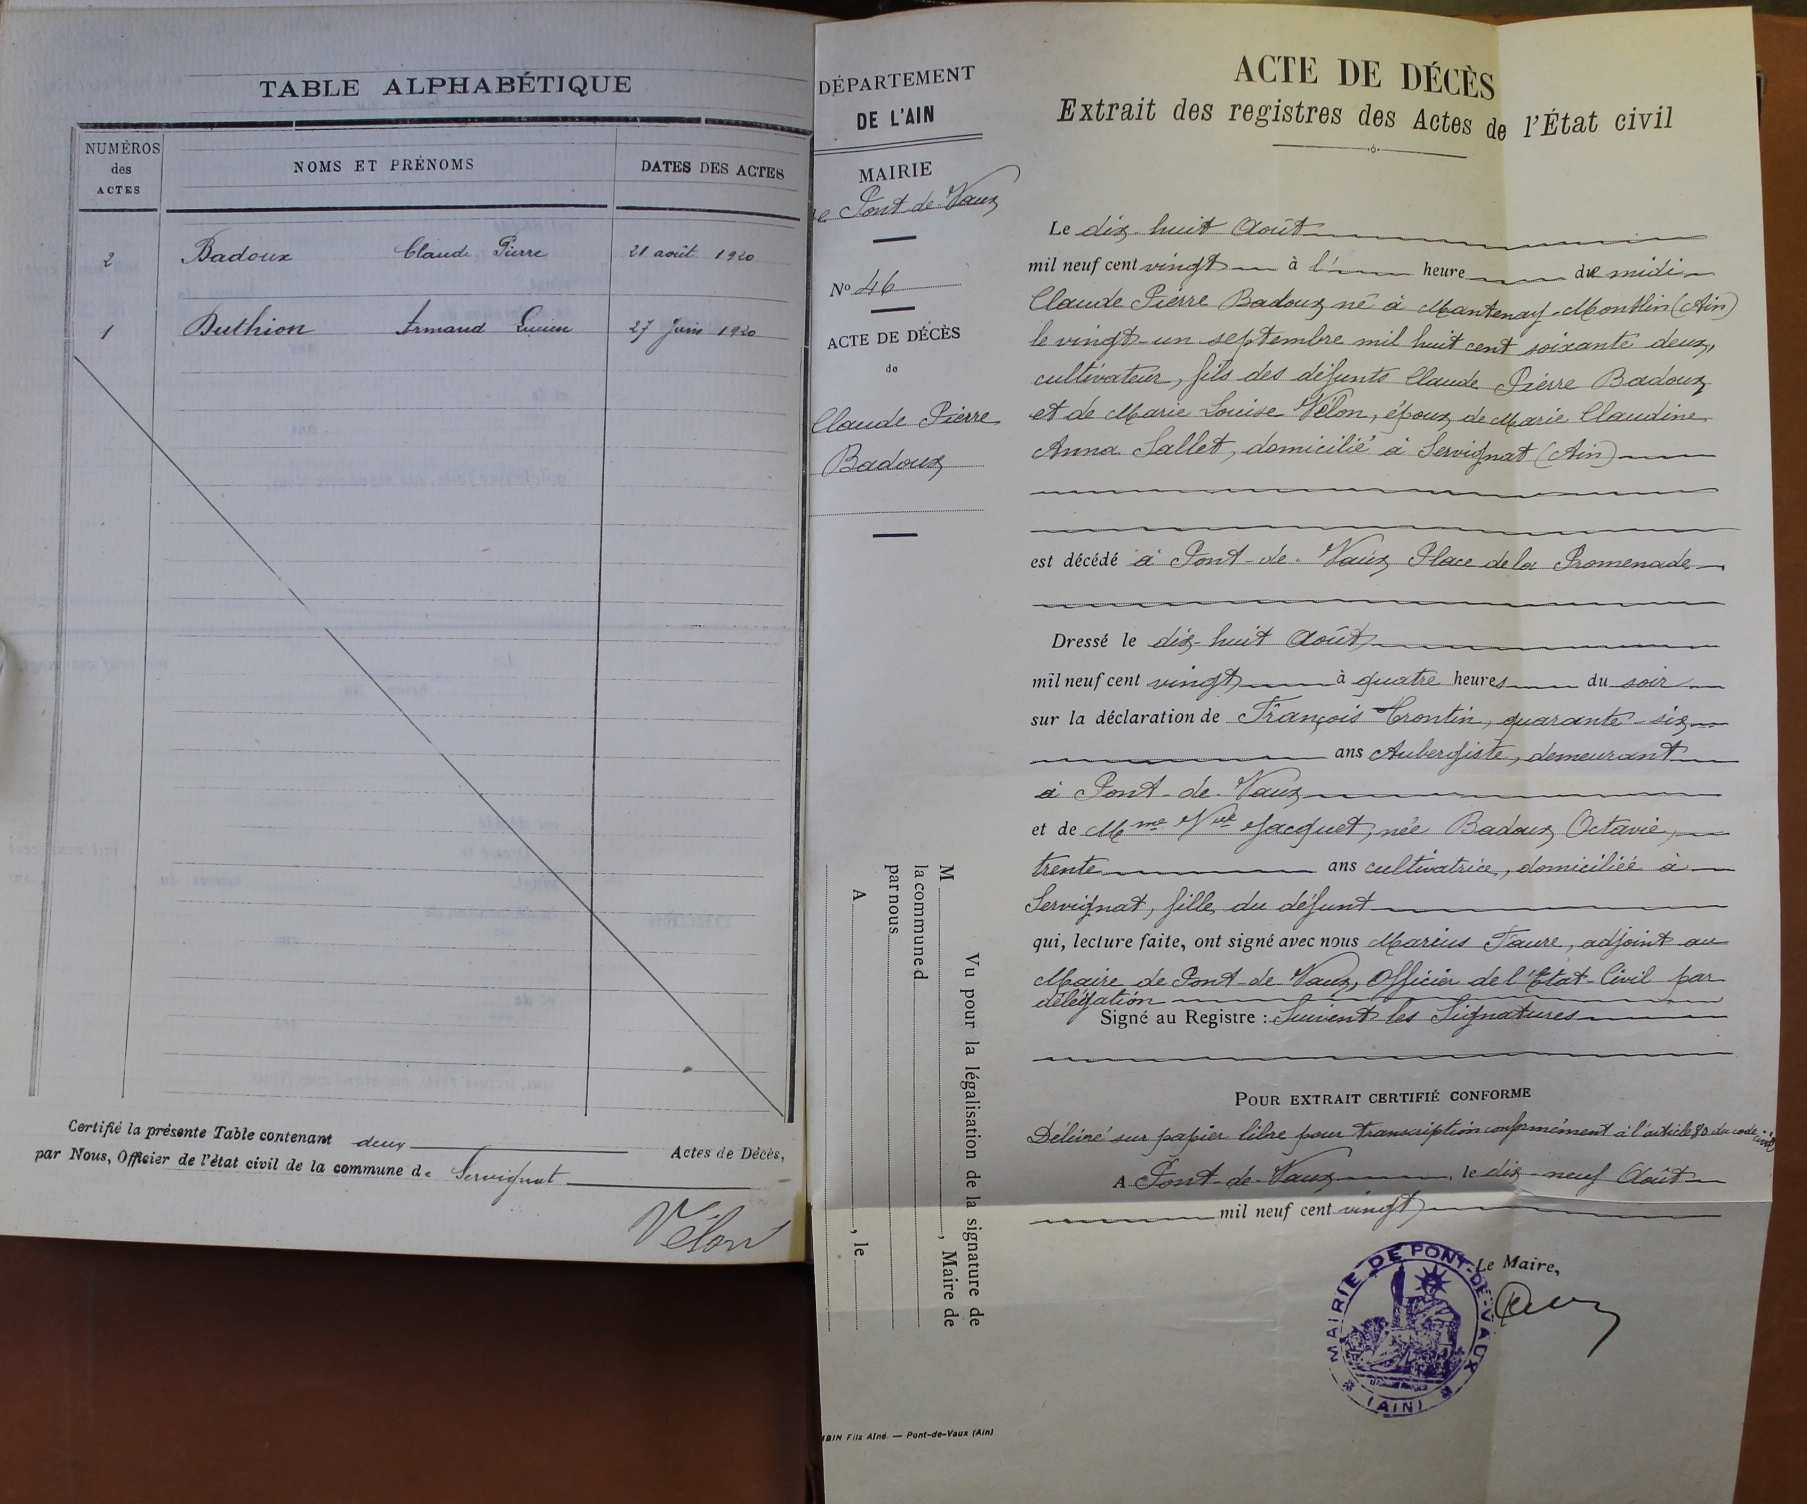 TABLE ALPHABÉTIQUE
NUMÉROS des ACTES
NOMS ET PRÉNOMS
DATES DES ACTES
2 Badoux Claude Pierre 21 août 1920
1 Duthion Armand Lucien 27 Juin 1920
Certifié la présente Table contenant deux Actes de Décès,
par Nous, Officier de l'état civil de la commune de Servignat
Vélon
DÉPARTEMENT
DE L'AIN
MAIRIE
de Pont-de-Vaux
No 46
ACTE DE DÉCÈS
de
Claude Pierre
Badoux
Vu pour la légalisation de la signature de
M , Maire de
la commune d
par nous
A , le
Fils Aîné. — Pont-de-Vaux (Ain)
ACTE DE DÉCÈS
Extrait des registres des Actes de l'État civil
Le dix-huit Août
mil neuf cent vingt à l' heure de midi
Claude Pierre Badoux né à Mantenay-Montlin (Ain)
le vingt-un septembre mil huit cent soixante deux,
cultivateur, fils des défunts Claude Pierre Badoux
et de Marie Louise Vélon, époux de Marie Claudine
Anna Sallet, domicilié à Servignat (Ain)
est décédé à Pont-de-Vaux Place de la Promenade
Dressé le dix-huit Août
mil neuf cent vingt à quatre heures du soir
sur la déclaration de François Crontin, quarante-six
ans Aubergiste, demeurant
à Pont-de-Vaux
et de Mme Vve Jacquet, née Badoux Octavie,
trente ans cultivatrice, domiciliée à
Servignat, fille du défunt
qui, lecture faite, ont signé avec nous Marius Faure, adjoint au
Maire de Pont-de-Vaux, Officier de l'Etat-Civil par
délégation
Signé au Registre : Suivent les Signatures
POUR EXTRAIT CERTIFIÉ CONFORME
Délivré sur papier libre pour transcription conformément à l'article 80 du code civil
A Pont-de-Vaux, le dix-neuf Août
mil neuf cent vingt
Le Maire,
MAIRIE DE PONT-DE-VAUX
(AIN)